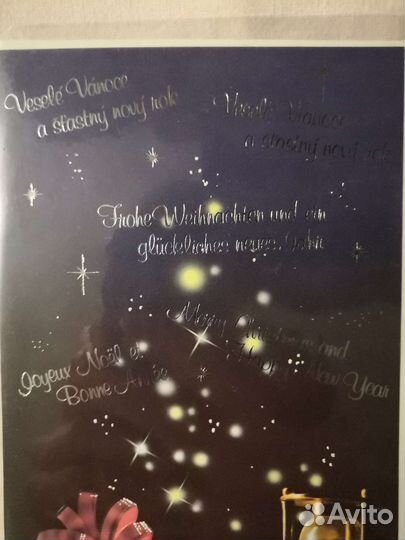 Veselé Vánoce
a šťastný nový rok
Veselé Vánoce
a šťastný nový rok
Frohe Weihnachten und ein
glückliches neues Jahr
Merry Christmas and
Happy New Year
Joyeux Noël et
Bonne Année
Avito